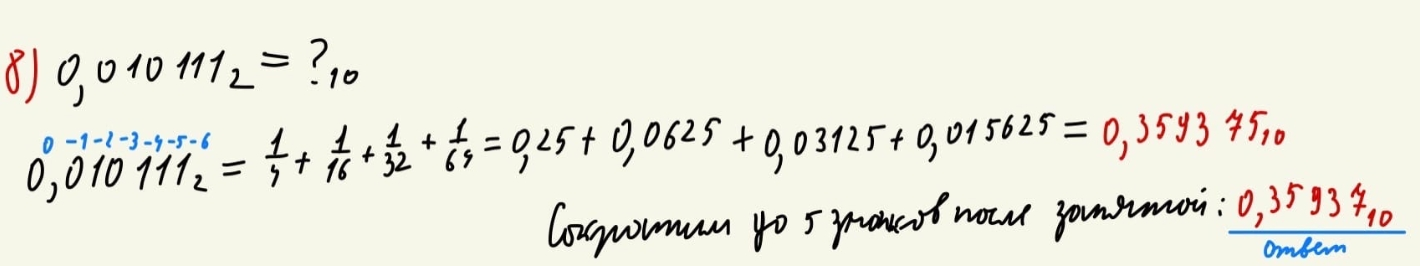 8) 0,010111₂ = ?₁₀
0 -1 -2 -3 -4 -5 -6
0,010111₂ = 1/4 + 1/16 + 1/32 + 1/64 = 0,25 + 0,0625 + 0,03125 + 0,015625 = 0,359375₁₀
Сократим до 5 знаков после запятой: 0,35937₁₀
ответ